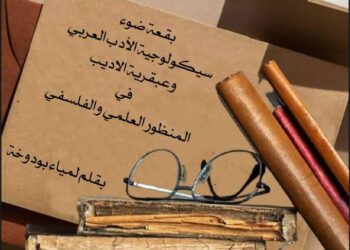 بقعة ضوء
سيكولوجية الأدب العربي
وعبقرية الاديب
في
المنظور العلمي والفلسفي
بقلم لمياء بودوخة